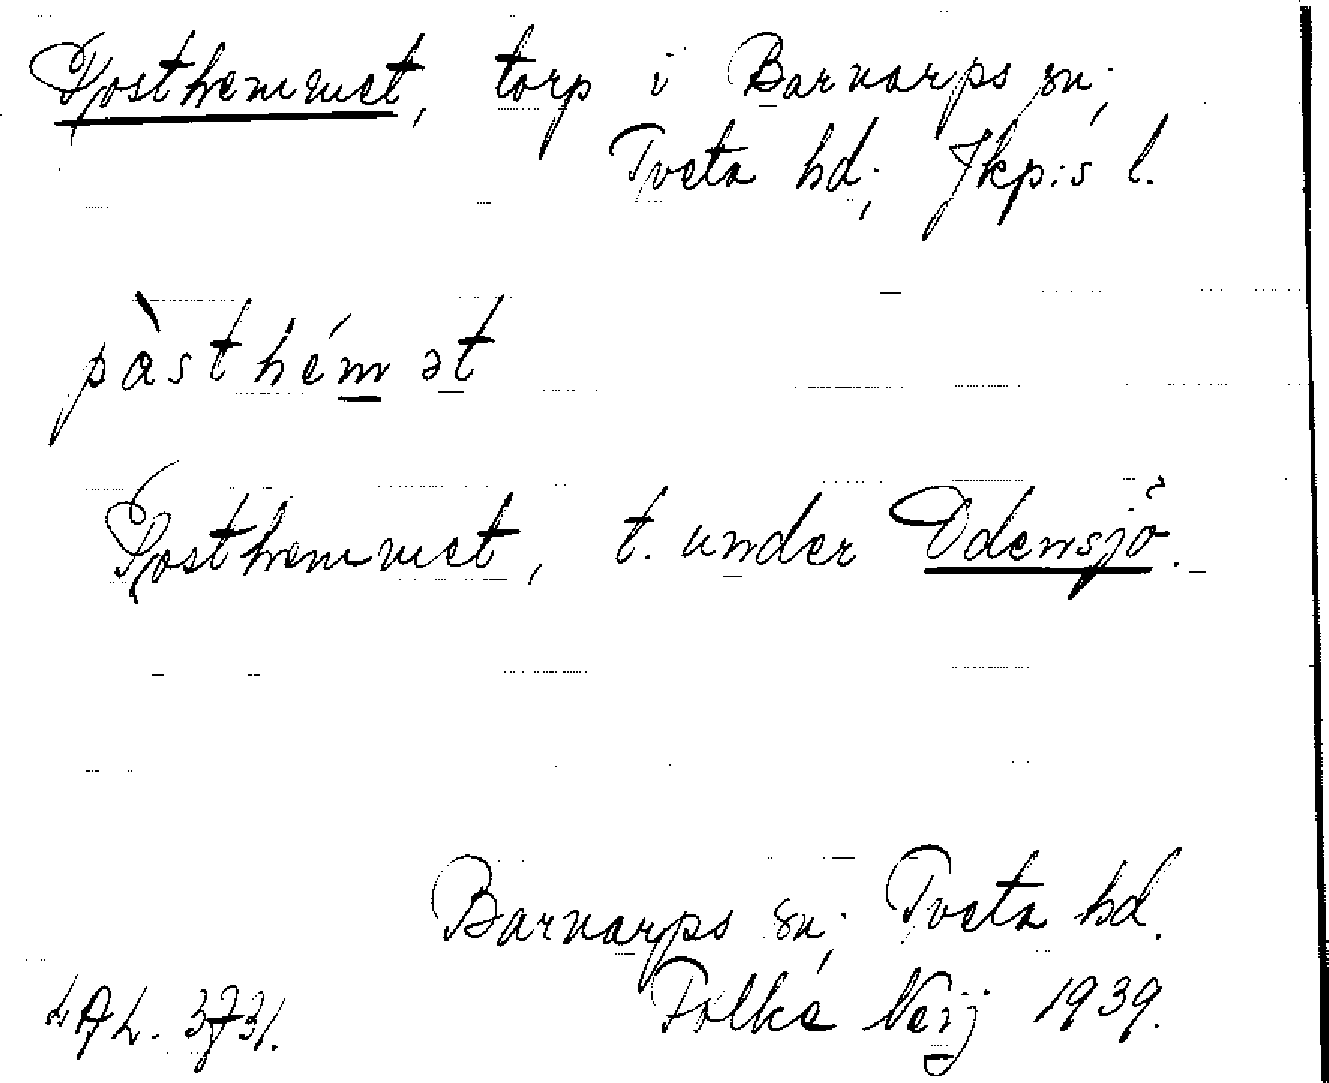 Posthemmet, torp i Barnarps sn;
Tveta hd; Jkp:s l.
pàsthémət
Posthemmet, t. under Odensjö.
Barnarps sn; Tveta hd.
Folke Neij 1939.
LAL. 3731.